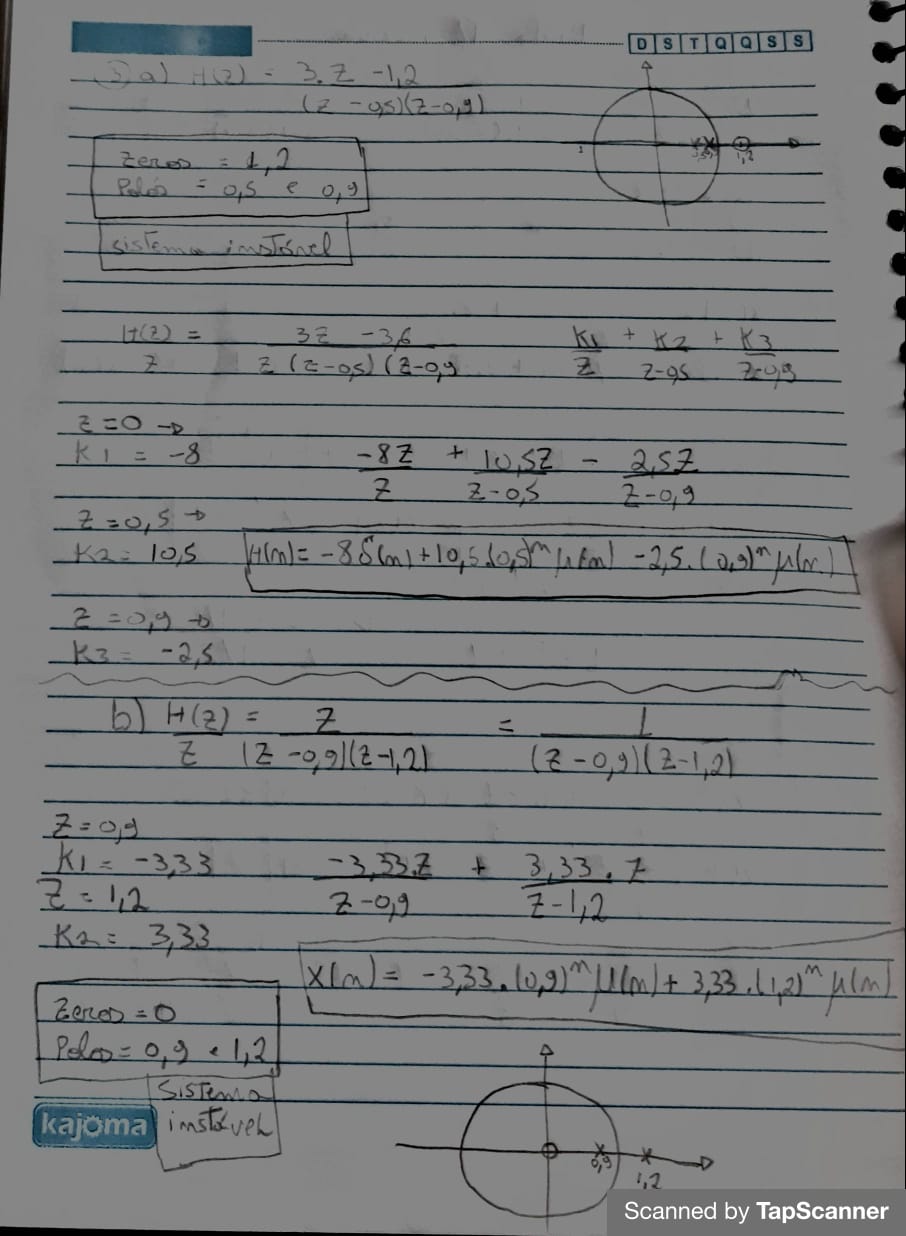 D S T Q Q S S
3) a) H(z) = 3.z - 1,2
(z - 0,5)(z - 0,9)
Zeros = 1,2
Polos = 0,5 e 0,9
1,2
sistema instável
H(z) = 3z - 3,6 K1 + K2 + K3
z z (z - 0,5) (z - 0,9 z z - 0,5 z - 0,9
z = 0 →
K1 = -8 -8z + 10,5z - 2,5z
z z - 0,5 z - 0,9
z = 0,5 →
K2 = 10,5 H(n) = -8 δ(n) + 10,5.(0,5)^n μ(n) - 2,5.(0,9)^n μ(n)
z = 0,9 →
K3 = -2,5
b) H(z) = z = 1
z (z - 0,9)(z - 1,2) (z - 0,9)(z - 1,2)
z = 0,9
K1 = -3,33 -3,33.z + 3,33.z
z = 1,2 z - 0,9 z - 1,2
K2 = 3,33
X(n) = -3,33.(0,9)^n μ(n) + 3,33.(1,2)^n μ(n)
Zeros = 0
Polos = 0,9 e 1,2
Sistema
instável
kajoma
0,9
1,2
Scanned by TapScanner